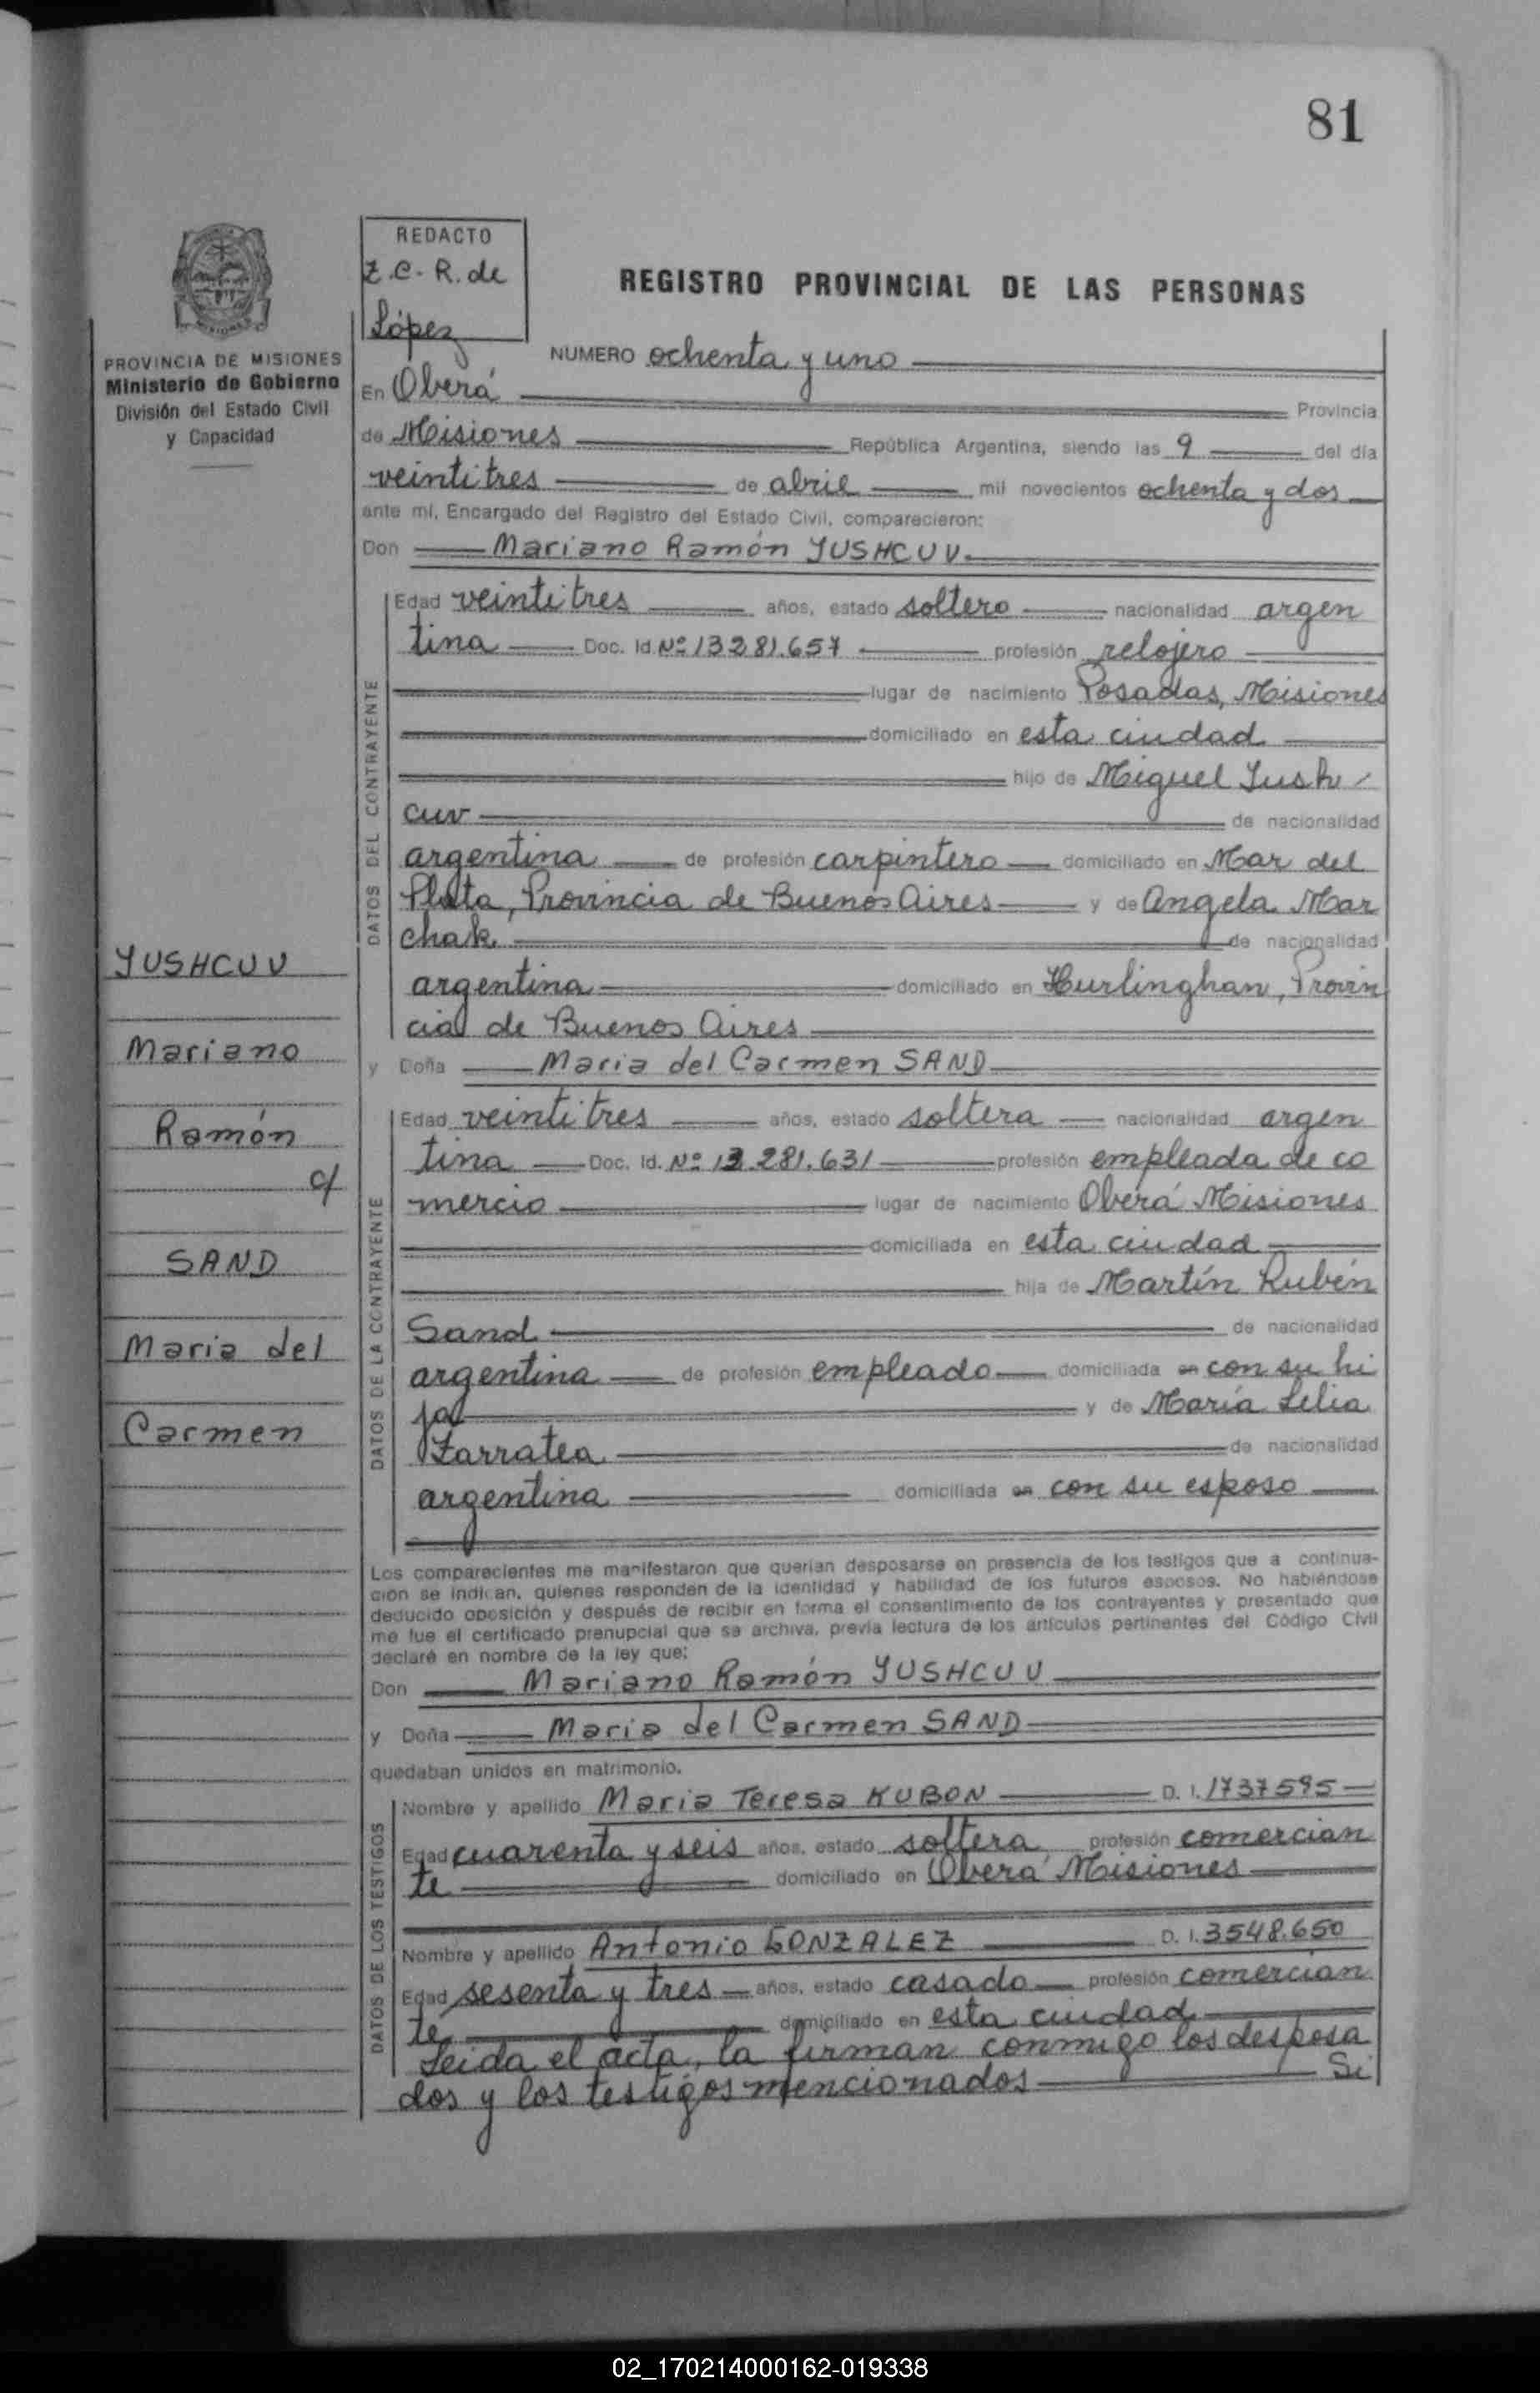 81
REDACTO
Z.C.R. de
López
REGISTRO PROVINCIAL DE LAS PERSONAS
PROVINCIA DE MISIONES
Ministerio de Gobierno
División del Estado Civil
y Capacidad
NUMERO ochenta y uno
En Oberá Provincia
de Misiones República Argentina, siendo las 9 del día
veintitres de abril mil novecientos ochenta y dos
ante mí, Encargado del Registro del Estado Civil, comparecieron:
Don Mariano Ramón YUSHCUV
DATOS DEL CONTRAYENTE
Edad veintitres años, estado soltero nacionalidad argen
tina Doc. Id. Nº 13281.657 profesión relojero
lugar de nacimiento Posadas, Misiones
domiciliado en esta ciudad
hijo de Miguel Yush
cuv de nacionalidad
argentina de profesión carpintero domiciliado en Mar del
Plata, Provincia de Buenos Aires y de Angela Mar
chak de nacionalidad
argentina domiciliado en Hurlinghan, Provin
cia de Buenos Aires
y Doña Maria del Carmen SAND
DATOS DE LA CONTRAYENTE
Edad veintitres años, estado soltera nacionalidad argen
tina Doc. Id. Nº 13.281.631 profesión empleada de co
mercio lugar de nacimiento Oberá Misiones
domiciliada en esta ciudad
hija de Martín Rubén
Sand de nacionalidad
argentina de profesión empleado domiciliada en con su hi
ja y de María Lelia
Zarratea de nacionalidad
argentina domiciliada en con su esposo
YUSHCUV
Mariano
Ramón
c/
SAND
Maria del
Carmen
Los comparecientes me manifestaron que querían desposarse en presencia de los testigos que a continua-
ción se indican, quienes responden de la identidad y habilidad de los futuros esposos. No habiéndose
deducido oposición y después de recibir en forma el consentimiento de los contrayentes y presentado que
me fue el certificado prenupcial que se archiva, previa lectura de los artículos pertinentes del Código Civil
declaré en nombre de la ley que:
Don Mariano Ramón YUSHCUV
y Doña Maria del Carmen SAND
quedaban unidos en matrimonio.
DATOS DE LOS TESTIGOS
Nombre y apellido Maria Teresa KUBON D. I. 1737595
Edad cuarenta y seis años, estado soltera profesión comercian
te domiciliado en Oberá Misiones
Nombre y apellido Antonio GONZALEZ D. I. 3548.650
Edad sesenta y tres años, estado casado profesión comercian
te domiciliado en esta ciudad
Leida el acta, la firman conmigo los desposa
dos y los testigos mencionados Si
02_170214000162-019338